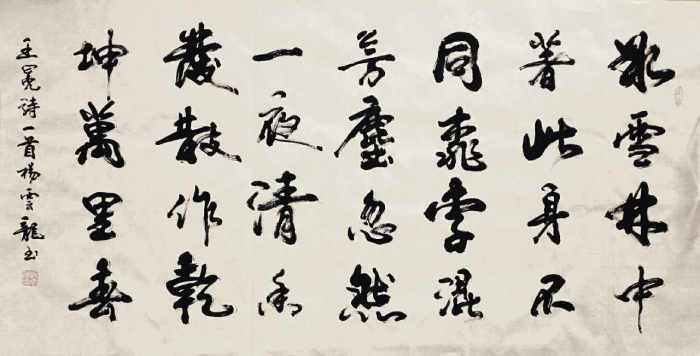 冰雪林中
著此身不
同桃李混
芳塵忽然
一夜清香
發散作乾
坤萬里春
王冕詩一首楊雲龍書